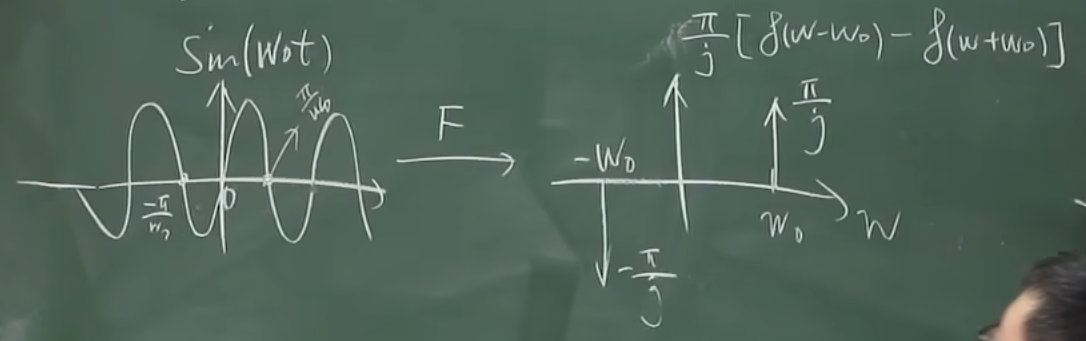 Sin(w₀t)
π/w₀
-π/w₀
0
F
π/j [δ(w-w₀) - δ(w+w₀)]
π/j
-w₀
w₀
w
-π/j